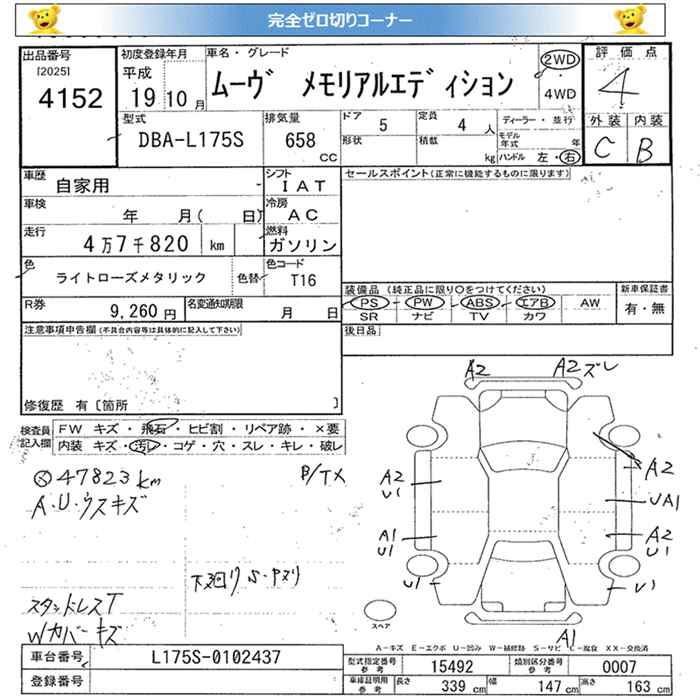 完全ゼロ切りコーナー
出品番号
[2025]
4152
初度登録年月
平成
19 10 月
車名・グレード
ムーヴ メモリアルエディション
2WD
4WD
評価点
4
外装 内装
C B
型式
DBA-L175S
排気量
658
CC
ドア
5
定員
4 人
形状
積載
kg
ディーラー・並行
モデル年式
年
ハンドル 左・右
車歴
自家用
シフト
IAT
車検
年 月( 日)
冷房
AC
走行
4万7千820 km
燃料
ガソリン
色
ライトローズメタリック
色替
色コード
T16
R券
9,260 円
名変通知期限
月 日
セールスポイント(正常に機能するものに限ります)
装備品 (純正品に限り○をつけてください)
PS PW ABS エアB AW
SR ナビ TV カワ
新車保証書
有・無
後日品
注意事項申告欄(不具合内容等は具体的に記入して下さい)
修復歴 有〔箇所 〕
検査員記入欄
FW キズ・飛石・ヒビ割・リペア跡・×要
内装 キズ・汚レ・コゲ・穴・スレ・キレ・破レ
47823km
A・U・ウスキズ
下廻り S・ヤスリ
スタッドレスT
Wカバーキズ
A2
A2ズレ
A2
U1
A1
U1
U1
A2
UA1
A2
U1
U1
A1
スペア
A-キズ E-エクボ U-凹み W-補修跡 S-サビ C-腐食 XX-交換済
車台番号
L175S-0102437
登録番号
型式指定番号
参考
15492
類別区分番号
参考
0007
車庫証明用
参考
長さ
339 cm
幅
147 cm
高さ
163 cm